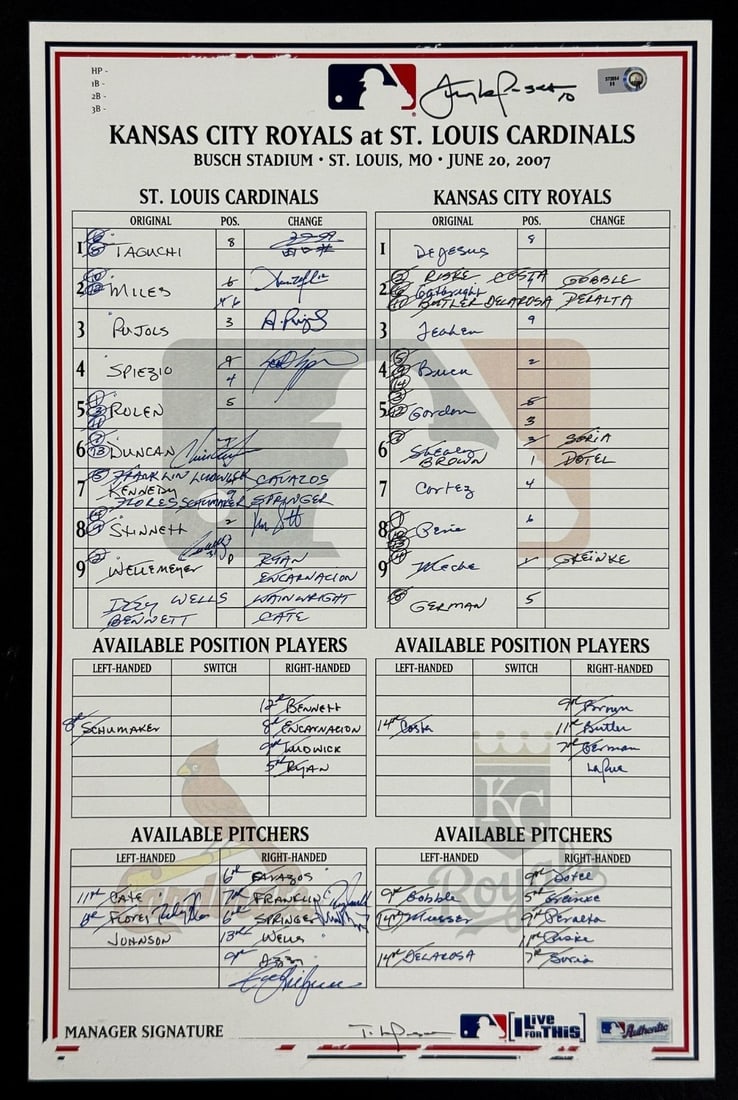 HP -
1B -
2B -
3B -
KANSAS CITY ROYALS at ST. LOUIS CARDINALS
BUSCH STADIUM • ST. LOUIS, MO • JUNE 20, 2007
ST. LOUIS CARDINALS
ORIGINAL POS. CHANGE
1 TAGUCHI 8
2 MILES 6
3 PUJOLS 3
4 SPIEZIO 9
4
5 ROLEN 5
6 DUNCAN 7
7 FRANKLIN LUDWICK CAVAZOS
KENNEDY 9
FLORES SCHUMAKER SPRINGER
8 STINNETT 2
9 WELLEMEYER P RYAN
ENCARNACION
IZZY WELLS WAINWRIGHT
BENNETT CATE
KANSAS CITY ROYALS
ORIGINAL POS. CHANGE
1 DeJesus 8
2 RISKE COSTA GOBBLE
Gathright 7
BUTLER DELAROSA PERALTA
3 Teahen 9
4 Buck 2
5 Gordon 5
3
6 Shealy 3 SORIA
BROWN 1 DOTEL
7 Cortez 4
8 Pena 6
9 Meche 1 GREINKE
GERMAN 5
AVAILABLE POSITION PLAYERS
LEFT-HANDED SWITCH RIGHT-HANDED
12th BENNETT
8th SCHUMAKER 8th ENCARNACION
9th LUDWICK
5th RYAN
AVAILABLE POSITION PLAYERS
LEFT-HANDED SWITCH RIGHT-HANDED
9th Brown
14th Costa 11th Butler
7th German
LaRue
AVAILABLE PITCHERS
LEFT-HANDED RIGHT-HANDED
6th CAVAZOS
11th CATE 7th FRANKLIN
8th FLORES 6th SPRINGER
JOHNSON 13th WELLS
9th IZZY
AVAILABLE PITCHERS
LEFT-HANDED RIGHT-HANDED
9th Dotel
9th Gobble 5th Greinke
14th Musser 9th Peralta
11th Riske
14th DELAROSA 7th Soria
KC
Royals
Cardinals
MANAGER SIGNATURE
I Live FOR THIS
Authentic